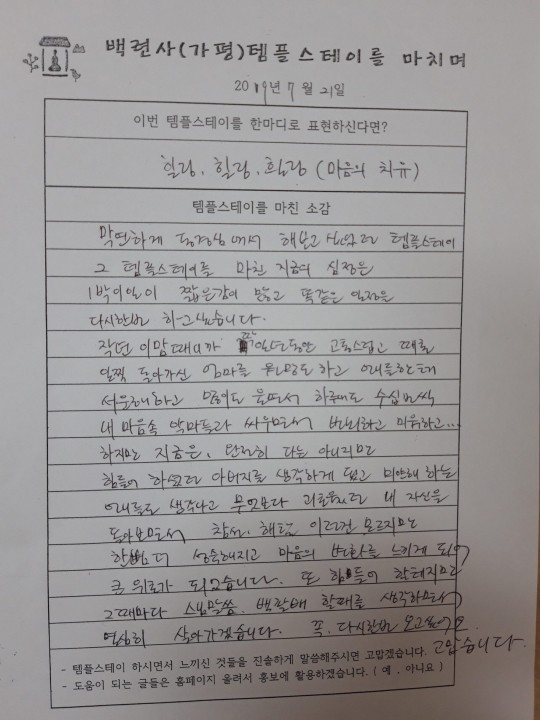 백련사(가평)템플스테이를 마치며
2019년 7월 21일
이번 템플스테이를 한마디로 표현하신다면?
힐링, 힐링, 힐링 (마음의 치유)
템플스테이를 마친 소감
막연하게 동경심에서 해보고 싶었던 템플스테이
그 템플스테이를 마친 지금의 심정은
1박이일이 짧은감이 많고 똑같은 일정을
다시한번 하고싶습니다.
작년 이맘때니까 딱 일년동안 고통스럽고 때론
일찍 돌아가신 엄마를 원망도 하고 애들한테
서운해하고 많이도 울면서 하루에도 수십번씩
내 마음속 악마들과 싸우면서 번뇌하고 미워하고...
하지만 지금은, 완전히 다는 아니지만
힘들어 하셨던 아버지를 생각하게 됐고 미안해 하는
애들도 생각나고 무엇보다 괴로웠던 내 자신을
돌아보면서 참선, 해탈 이런건 모르지만
한뼘 더 성숙해지고 마음의 변화를 느끼게 되어
큰 위로가 되었습니다. 또 힘들어 할테지만
그때마다 스님말씀, 백팔배 할때를 생각하면서
열심히 살아가겠습니다. 꼭, 다시한번 오고싶어요
고맙습니다.
- 템플스테이 하시면서 느끼신 것들을 진솔하게 말씀해주시면 고맙겠습니다.
- 도움이 되는 글들은 홈페이지 올려서 홍보에 활용하겠습니다. ( 예 . 아니요 )